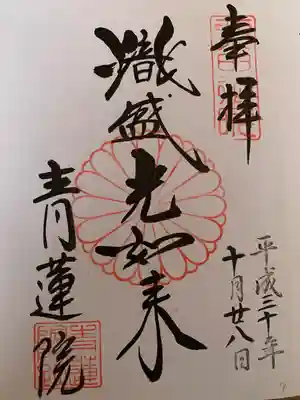 奉拝
平成三十年
十月廿八日
熾盛光如来
青蓮院